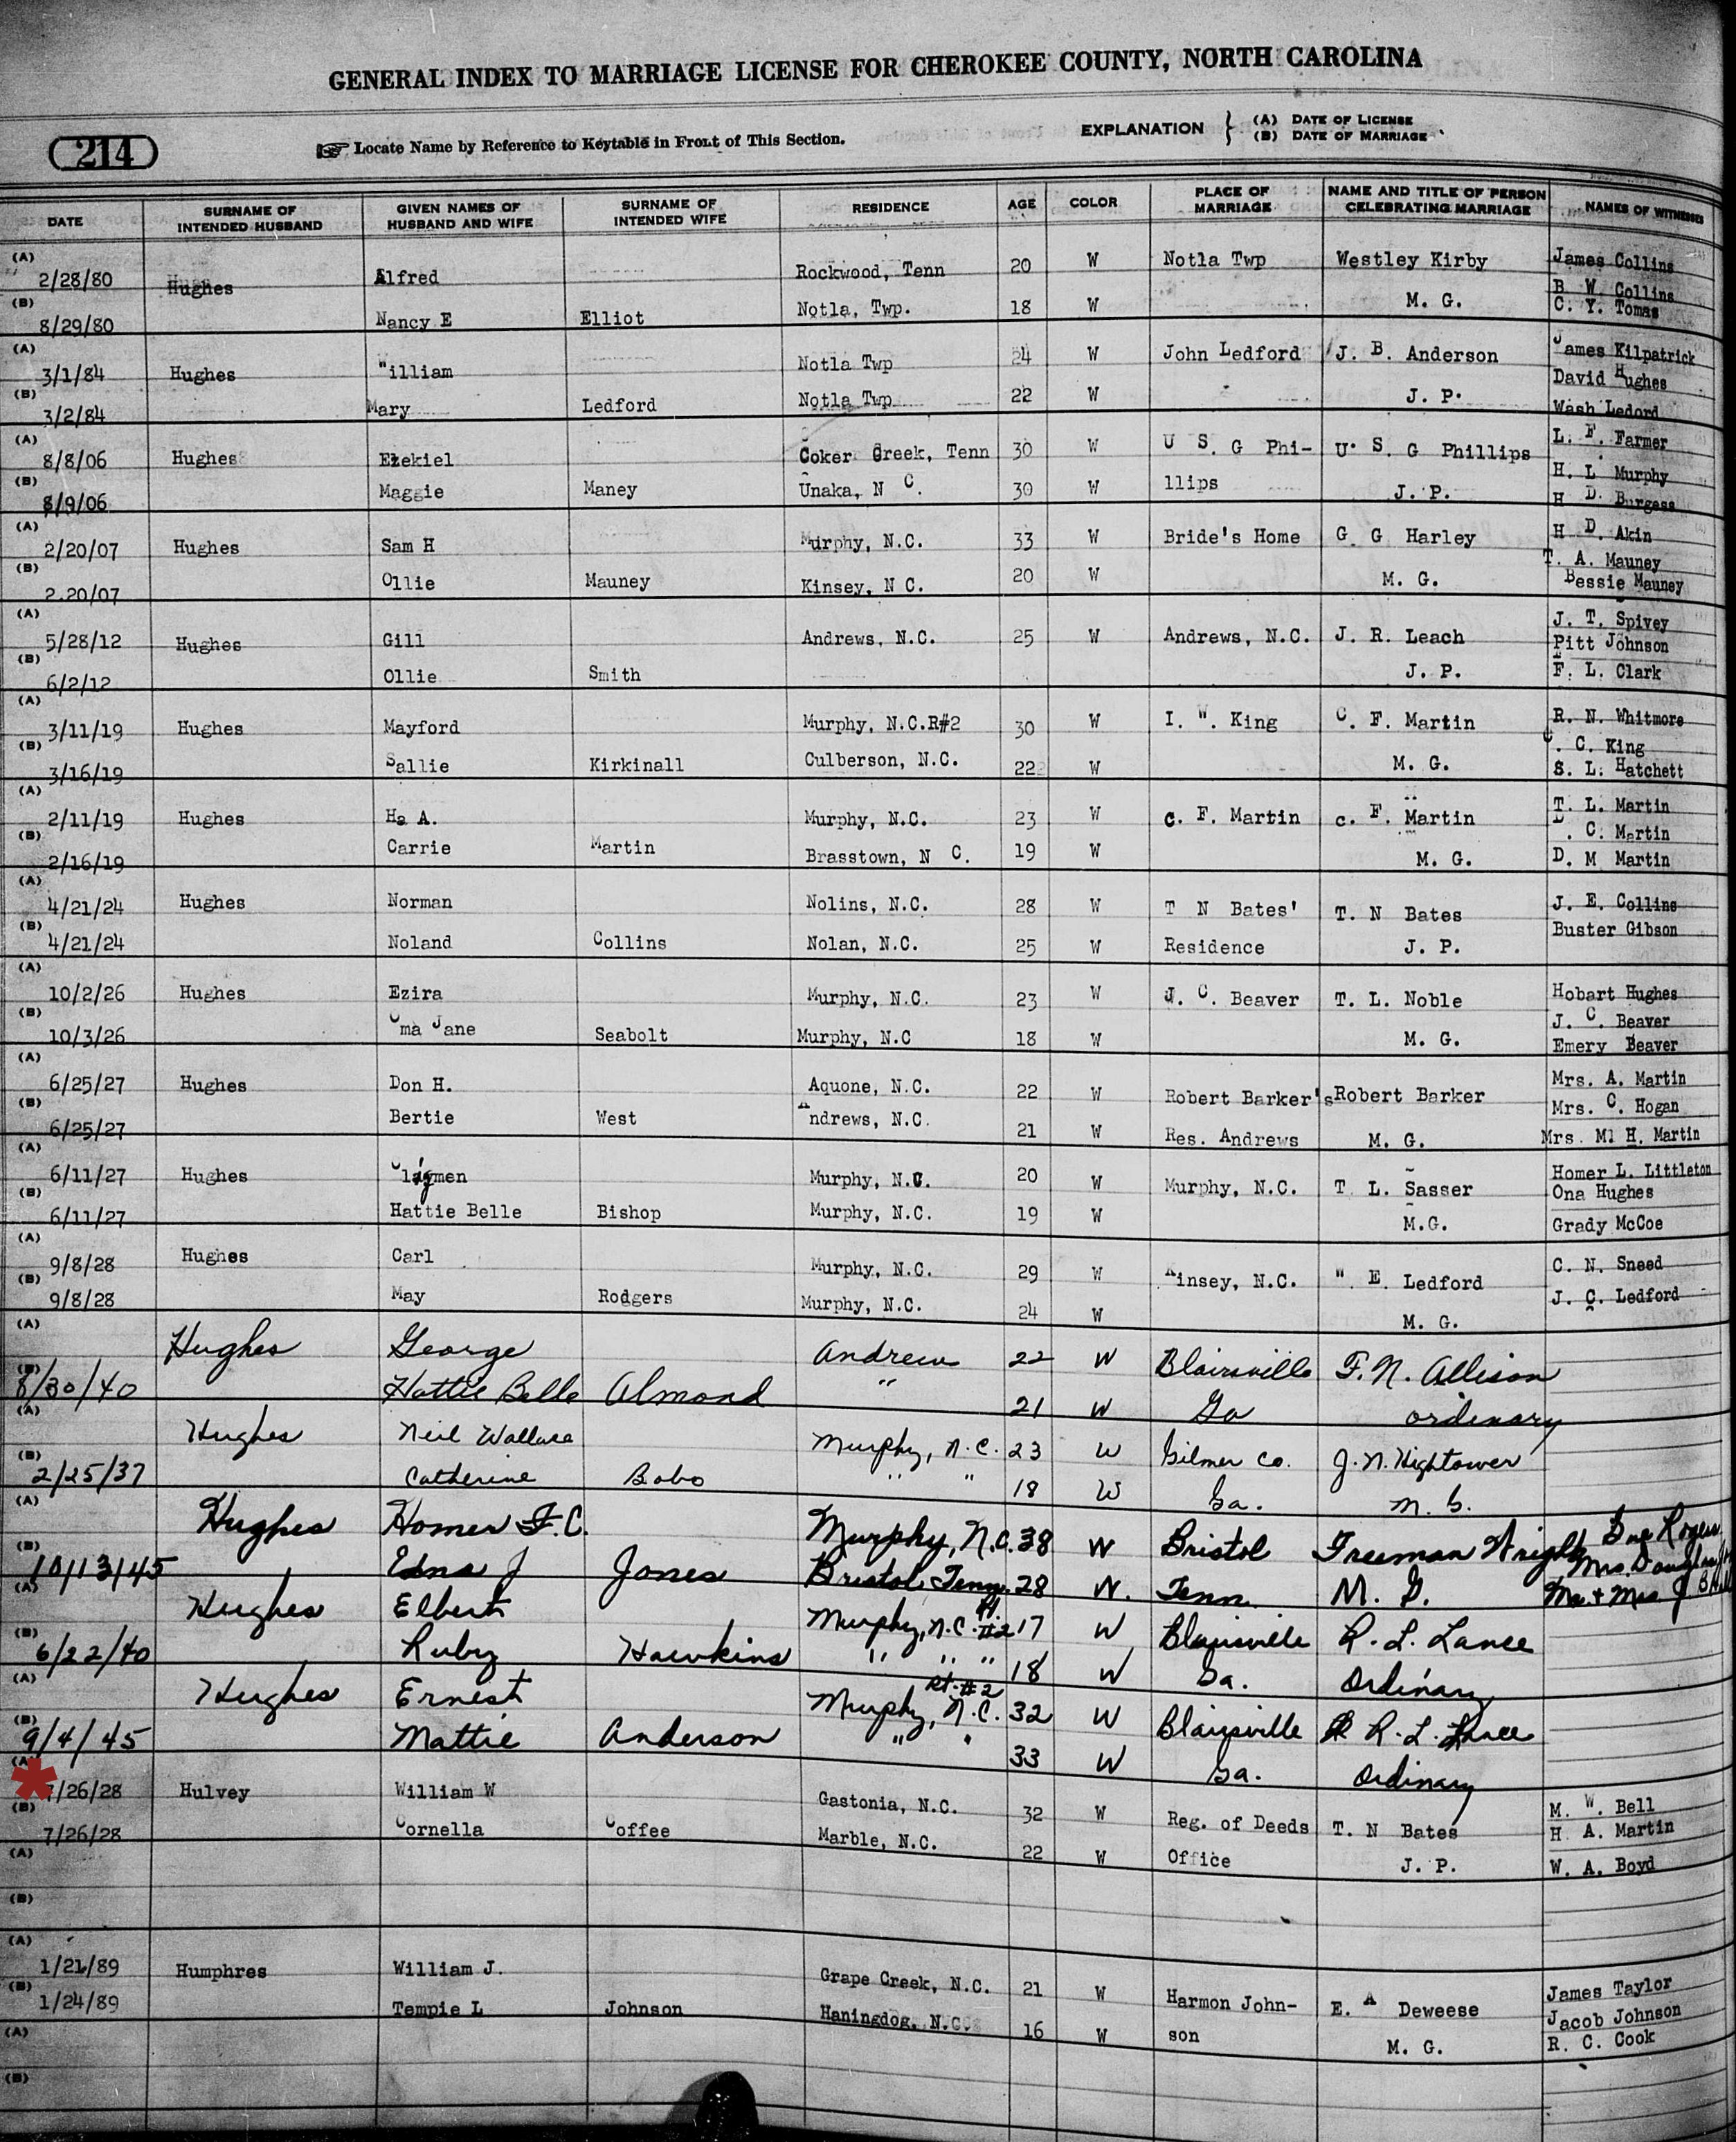 GENERAL INDEX TO MARRIAGE LICENSE FOR CHEROKEE COUNTY, NORTH CAROLINA
214
Locate Name by Reference to Keytable in Front of This Section.
EXPLANATION } (A) DATE OF LICENSE
(B) DATE OF MARRIAGE
DATE SURNAME OF INTENDED HUSBAND GIVEN NAMES OF HUSBAND AND WIFE SURNAME OF INTENDED WIFE RESIDENCE AGE COLOR PLACE OF MARRIAGE NAME AND TITLE OF PERSON CELEBRATING MARRIAGE NAMES OF WITNESSES
(A) 2/28/80 Hughes Alfred Rockwood, Tenn 20 W Notla Twp Westley Kirby James Collins
B. W. Collins
(B) 8/29/80 Nancy E Elliot Notla, Twp. 18 W M. G. C. Y. Tomas
(A) 3/1/84 Hughes "illiam Notla Twp 24 W John Ledford J. B. Anderson James Kilpatrick
David Hughes
(B) 3/2/84 Mary Ledford Notla Twp 22 W J. P. Wash Ledord
(A) 8/8/06 Hughes Ezekiel Coker Creek, Tenn 30 W U S. G Phi- U. S. G Phillips L. F. Farmer
H. L Murphy
(B) 8/9/06 Maggie Maney Unaka, N C. 30 W llips J. P. H D. Burgess
(A) 2/20/07 Hughes Sam H Murphy, N.C. 33 W Bride's Home G G Harley H D. Akin
T. A. Mauney
(B) 2.20/07 Ollie Mauney Kinsey, N C. 20 W M. G. Bessie Mauney
(A) 5/28/12 Hughes Gill Andrews, N.C. 25 W Andrews, N.C. J. R. Leach J. T. Spivey
Pitt Johnson
(B) 6/2/12 Ollie Smith J. P. F. L. Clark
(A) 3/11/19 Hughes Mayford Murphy, N.C.R#2 30 W I. W. King C. F. Martin R. N. Whitmore
. C. King
(B) 3/16/19 Sallie Kirkinall Culberson, N.C. 22 W M. G. S. L. Hatchett
(A) 2/11/19 Hughes Ha A. Murphy, N.C. 23 W C. F. Martin C. F. Martin T. L. Martin
. C. Martin
(B) 2/16/19 Carrie Martin Brasstown, N C. 19 W M. G. D. M Martin
(A) 4/21/24 Hughes Norman Nolins, N.C. 28 W T N Bates' T. N Bates J. E. Collins
Buster Gibson
(B) 4/21/24 Noland Collins Nolan, N.C. 25 W Residence J. P.
(A) 10/2/26 Hughes Ezira Murphy, N.C. 23 W J. C. Beaver T. L. Noble Hobart Hughes
J. C. Beaver
(B) 10/3/26 Oma Jane Seabolt Murphy, N.C 18 W M. G. Emery Beaver
(A) 6/25/27 Hughes Don H. Aquone, N.C. 22 W Robert Barker's Robert Barker Mrs. A. Martin
Mrs. C. Hogan
(B) 6/25/27 Bertie West Andrews, N.C. 21 W Res. Andrews M. G. Mrs. Ml H. Martin
(A) 6/11/27 Hughes Claymen Murphy, N.C. 20 W Murphy, N.C. T L. Sasser Homer L. Littleton
Ona Hughes
(B) 6/11/27 Hattie Belle Bishop Murphy, N.C. 19 W M.G. Grady McCoe
(A) 9/8/28 Hughes Carl Murphy, N.C. 29 W Kinsey, N.C. W E. Ledford C. N. Sneed
(B) 9/8/28 May Rodgers Murphy, N.C. 24 W M. G. J. C. Ledford
(A) Hughes George Andrews 22 W Blairsville F. N. Allison
(B) 8/30/40 Hattie Belle Almond " 21 W Ga ordinary
(A) Hughes Neil Wallace Murphy, N.C. 23 W Gilmer Co. J. N. Hightower
(B) 2/25/37 Catherine Bobo " " 18 W Ga. M. G.
(A) Hughes Homer F. C. Murphy, N.C. 38 W Bristol Freeman Wright Rogers
Mrs.
(B) 10/13/45 Edna J Jones Bristol, Tenn. 28 W. Tenn. M. G. Mr. + Mrs J
(A) Hughes Elbert Murphy, N.C. Rt. #2 17 W Blairsville R. L. Lance
(B) 6/22/40 Ruby Hawkins " " " 18 W Ga. Ordinary
(A) Hughes Ernest Murphy, N.C. Rt. #2 32 W Blairsville R. L. Lance
(B) 9/4/45 Mattie Anderson " " 33 W Ga. Ordinary
(A) 7/26/28 Hulvey William W Gastonia, N.C. 32 W Reg. of Deeds T. N Bates M. W. Bell
H A. Martin
(B) 7/26/28 Cornella Coffee Marble, N.C. 22 W Office J. P. W. A. Boyd
(A)
(B)
(A) 1/21/89 Humphres William J. Grape Creek, N.C. 21 W Harmon John- E. A Deweese James Taylor
Jacob Johnson
(B) 1/24/89 Tempie L Johnson Haningdog, N.C. 16 W son M. G. R. C. Cook
(A)
(B)